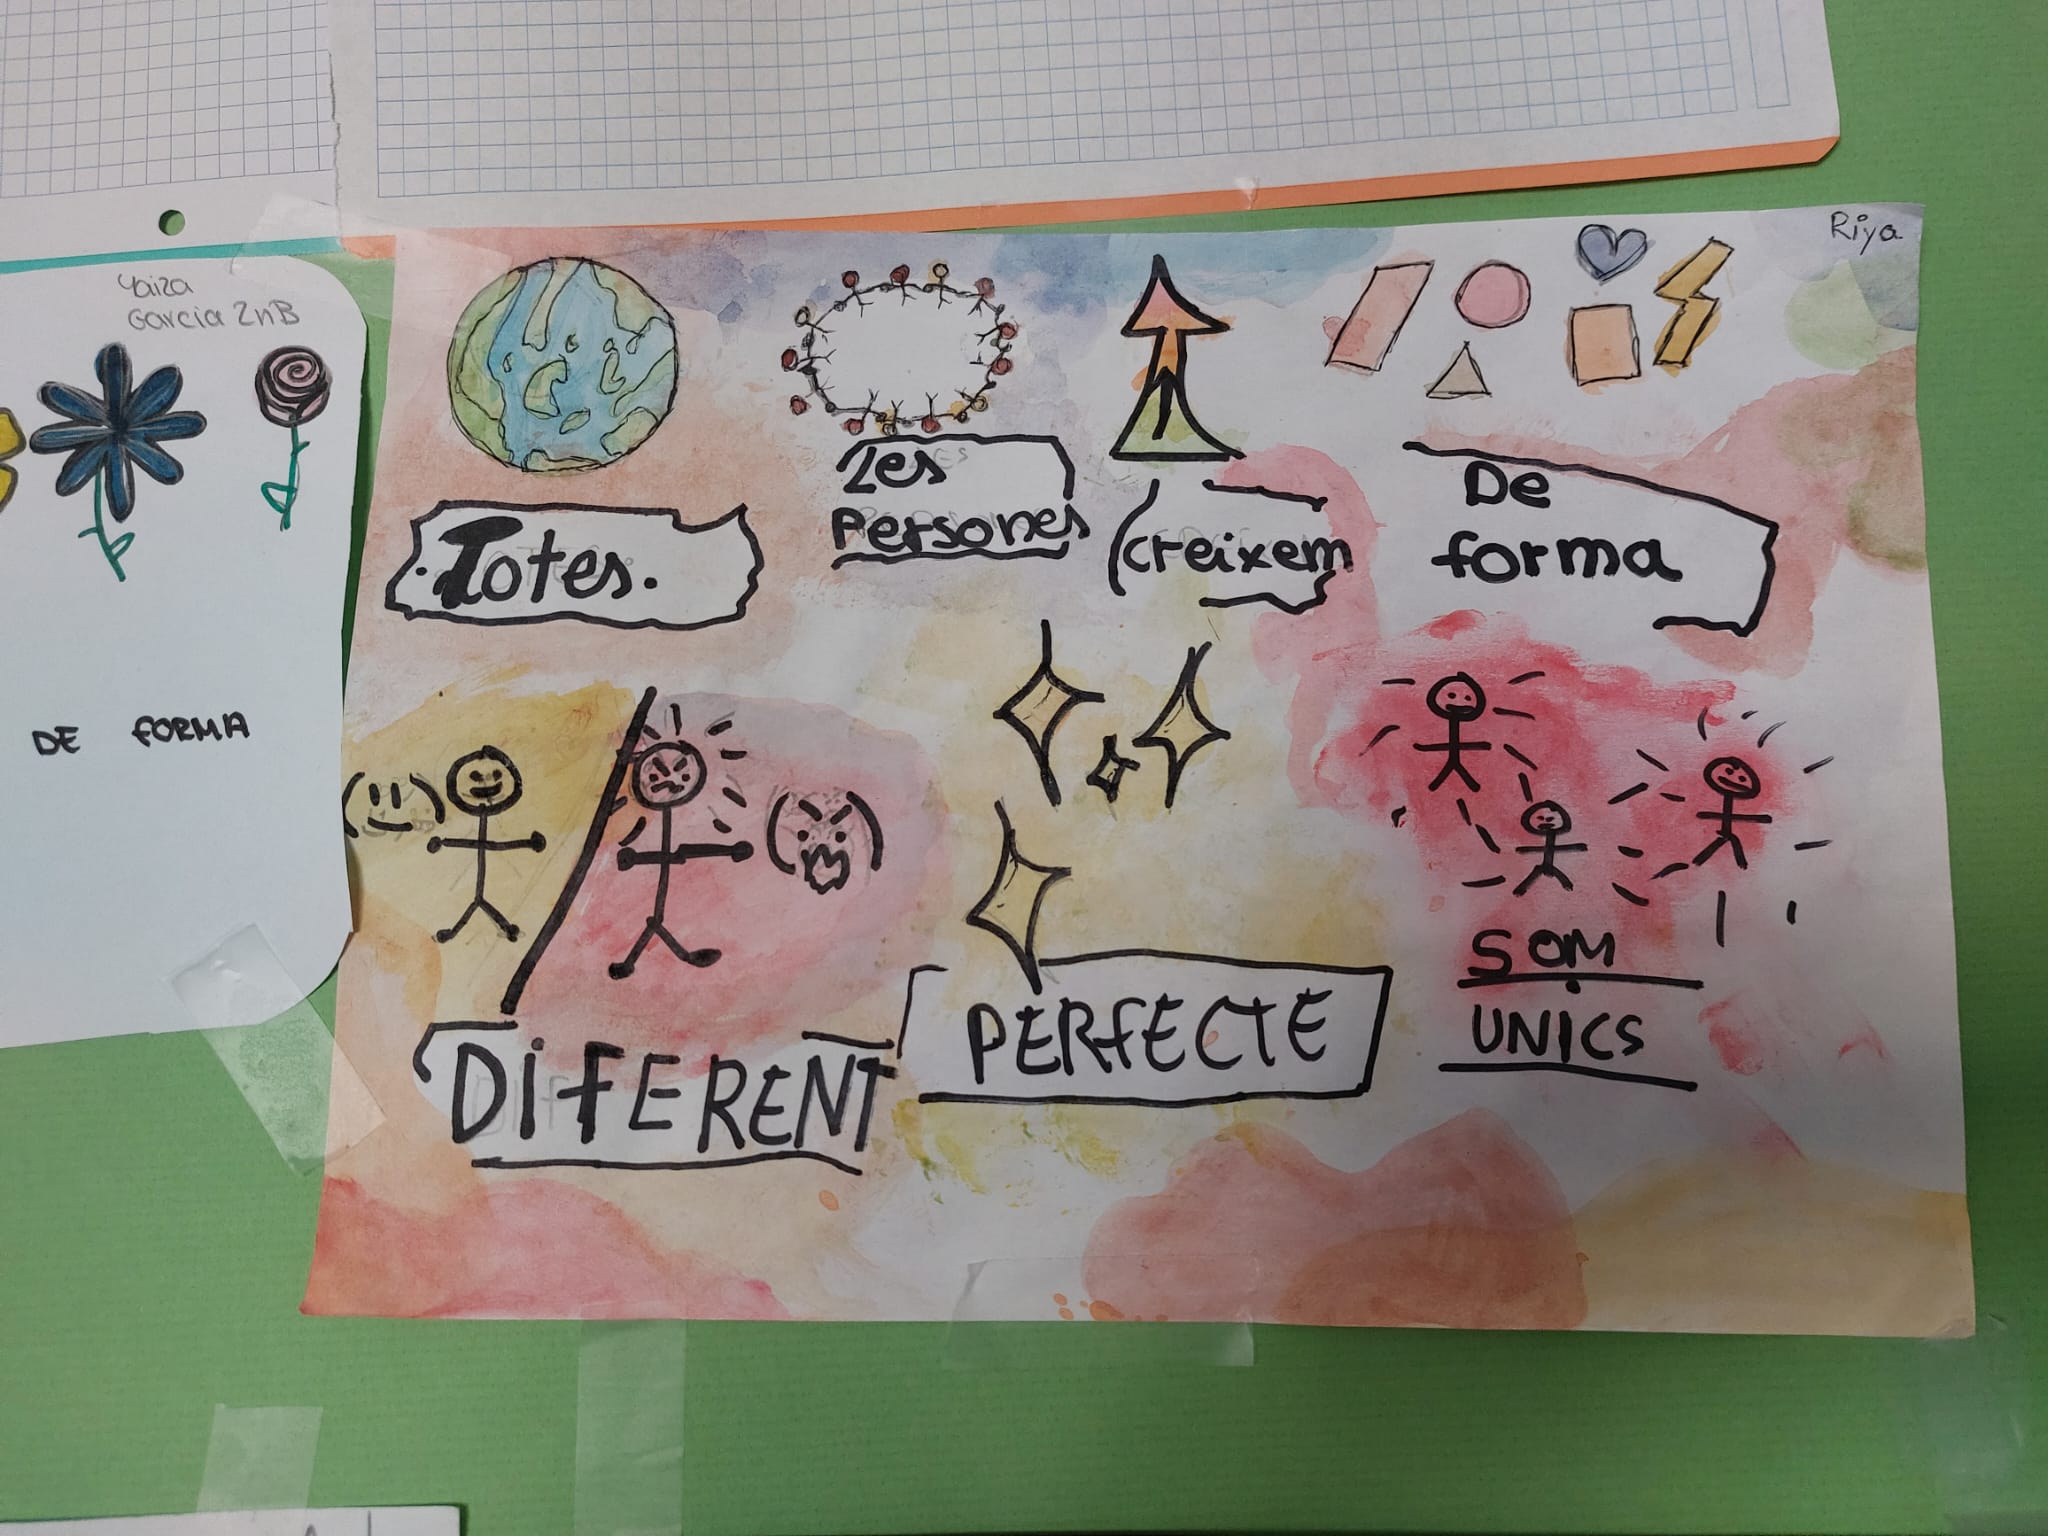 Yaiza
Garcia 2nB
DE FORMA
Riya
Totes.
Les
Persones
creixem
De
forma
DiFERENT
PERFECTE
SOM
UNICS